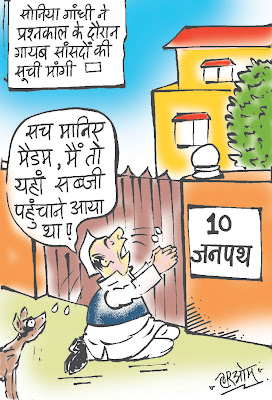 सोनिया गांधी ने
प्रश्नकाल के दौरान
गायब सांसदों की
सूची मांगी
सच मानिए
मैडम, मैं तो
यहाँ सब्जी
पहुँचाने आया
था!
10
जनपथ
हरिओम